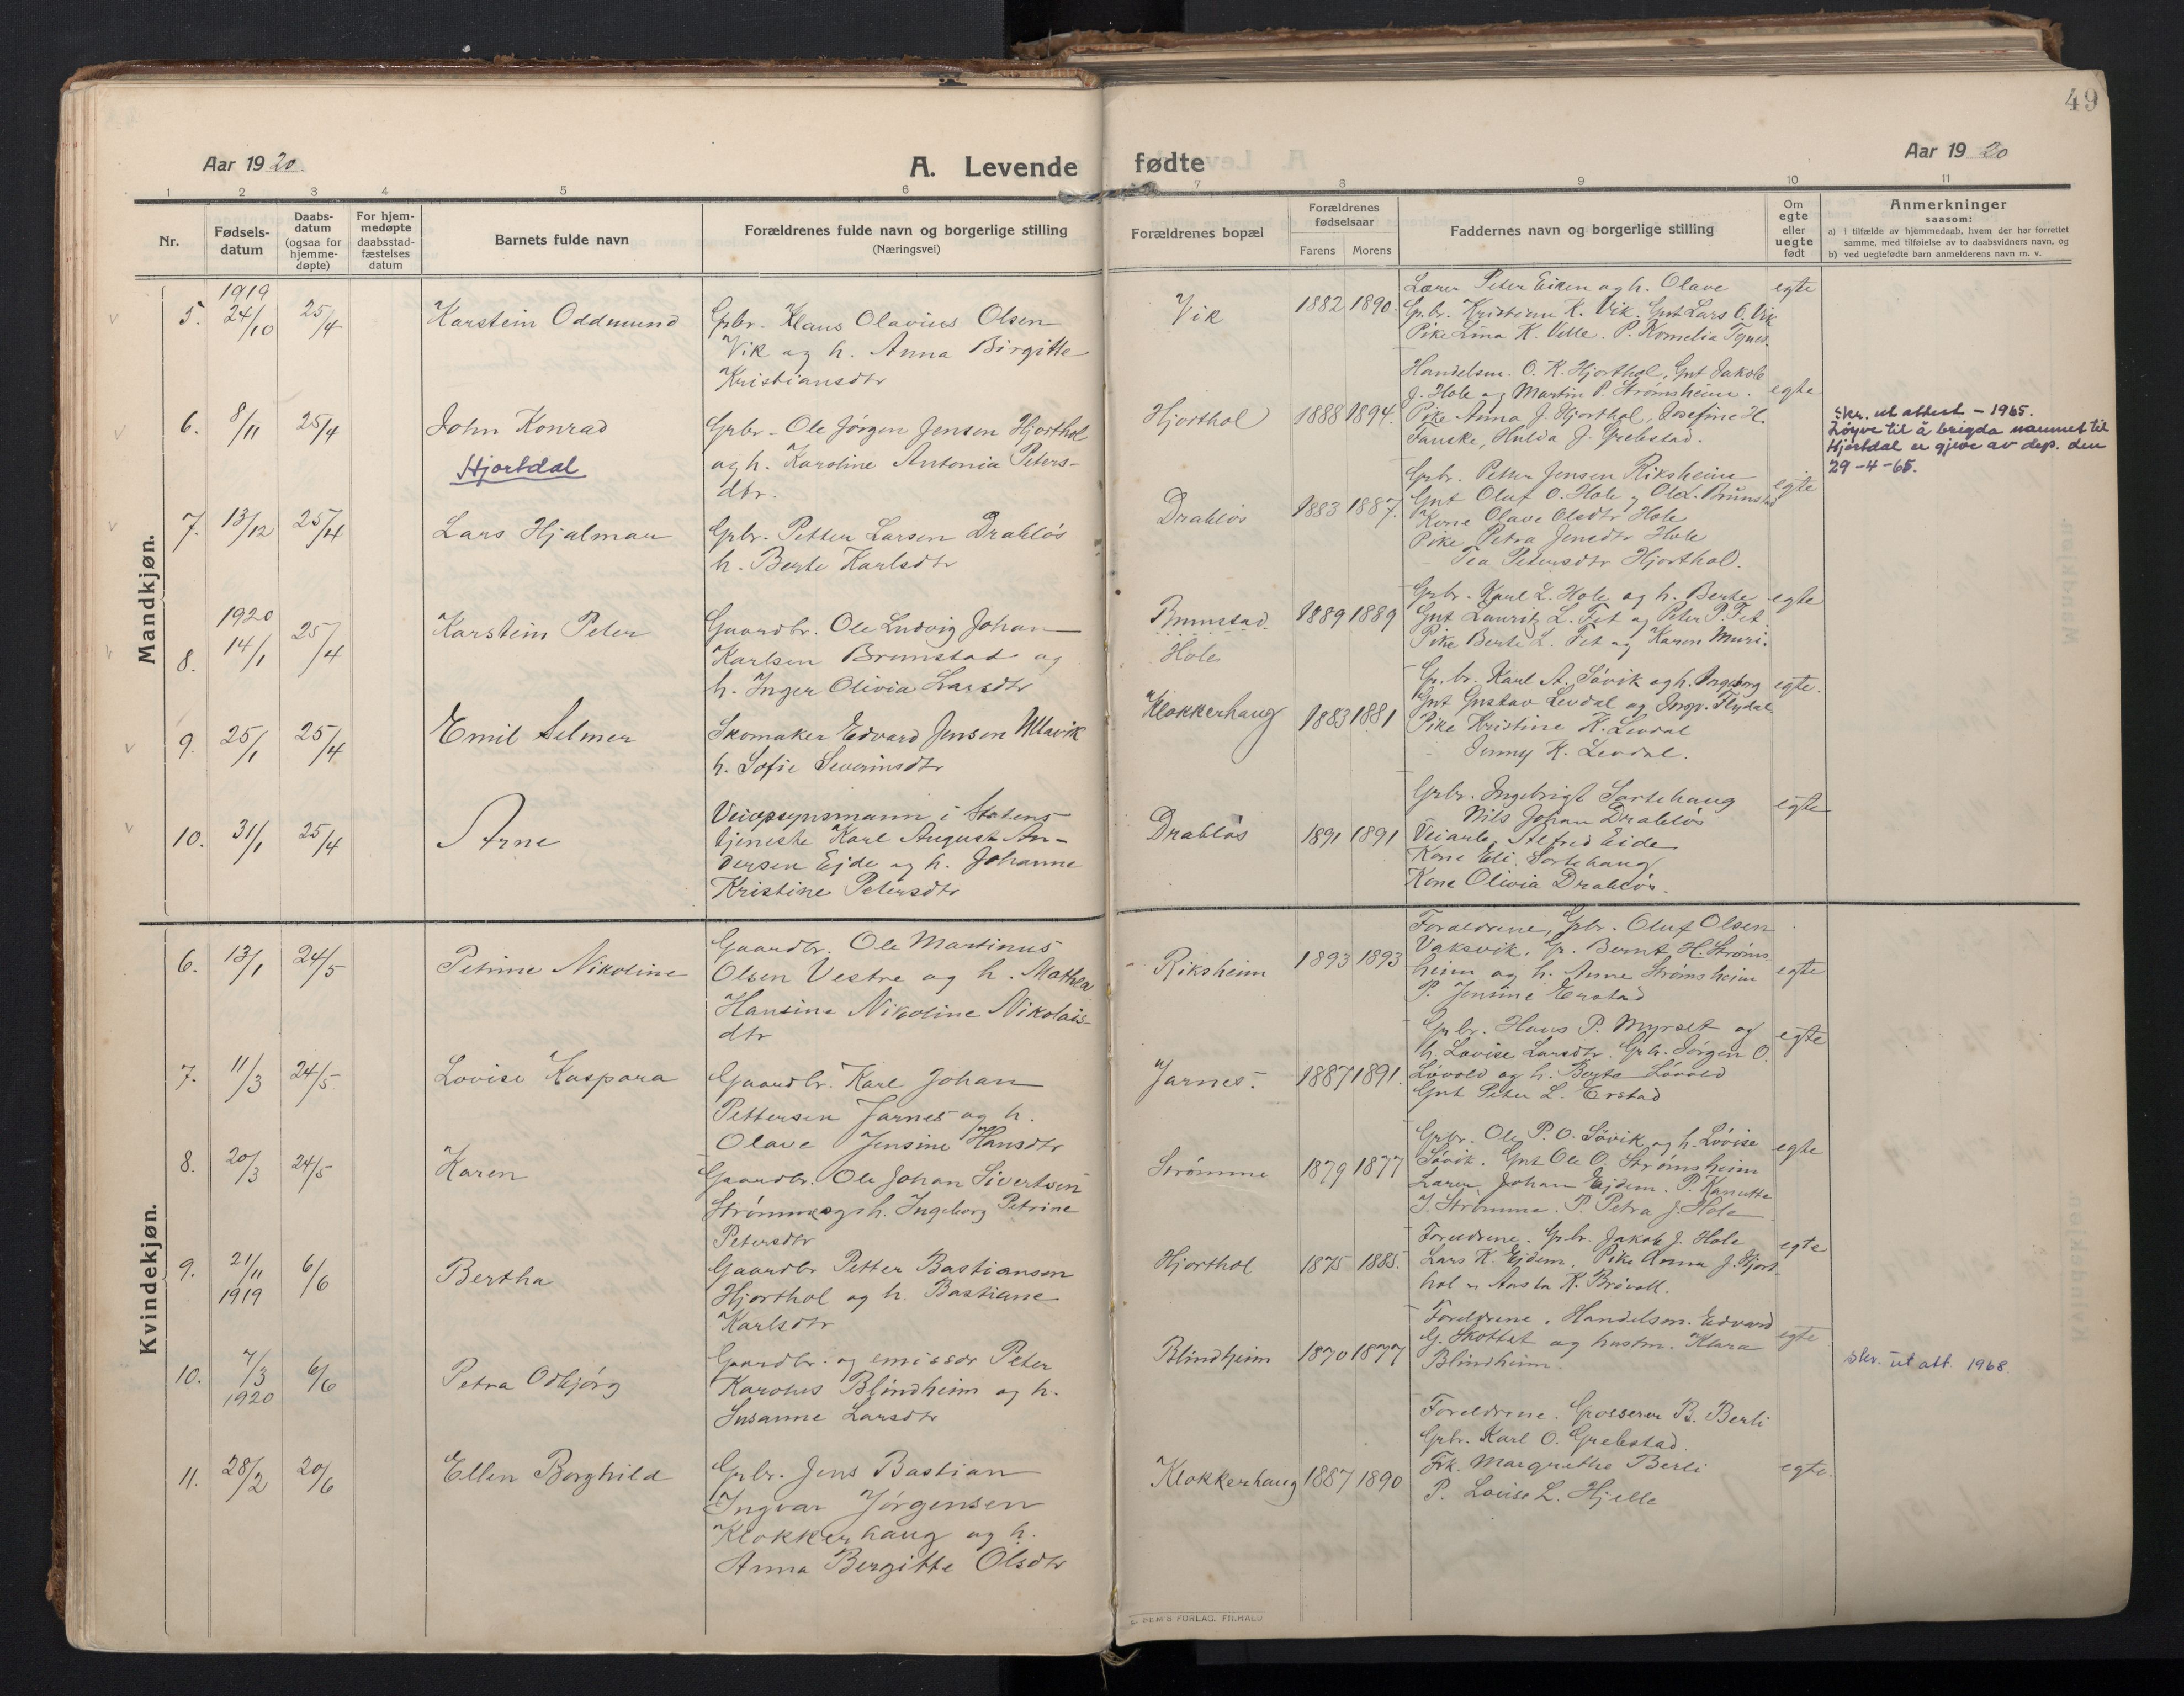 49
Aar 1920.
A. Levende fødte
Aar 1920
1 2 3 4 5 6 7 8 9 10 11
Nr.
Fødsels-
datum
Daabs-
datum
(ogsaa for
hjemme-
døpte)
For hjem-
medøpte
daabsstad-
fæstelses
datum
Barnets fulde navn
Forældrenes fulde navn og borgerlige stilling
(Næringsvei)
Forældrenes bopæl
Forældrenes
fødselsaar
Farens Morens
Faddernes navn og borgerlige stilling
Om
egte
eller
uegte
født
Anmerkninger
saasom:
a) i tilfælde av hjemmedaab, hvem der har forrettet
samme, med tilføielse av to daabsvidners navn, og
b) ved uegtefødte barn anmelderens navn m. v.
Mandkjøn.
1919
5. 24/10 25/4 Karstein Oddmund
Gbr. Klaus Olavius Olsen
Vik og h. Anna Birgitte
Kristiansdtr
Vik 1882 1890.
Lærer Peter Eiken og h. Olave
Gbr. Kristian K. Vik. Gut Lars O. Vik
Pike Lina K. Velle. P. Kornelia Tynes.
egte
6. 8/11 25/4 John Konrad
Hjortdal
Grbr. Ole Jørgen Jensen Hjorthol
og h. Karoline Antonia Peters-
dtr.
Hjorthol 1888 1894.
Handelsm. O. K. Hjorthol, Gut Jakob
J. Hole og Martin P. Strømsheim.
Pike Anna J. Hjorthol, Josefine H.
Tauske, Hulda J. Grebstad.
egte
Skr. ut attest – 1965.
Løyve til å brigda namnet til
Hjortdal er gjeve av dep. den
29-4-65.
7. 13/12 25/4 Lars Hjalmar
Grbr. Petter Larsen Drabløs
h. Berte Karlsdtr
Drabløs 1883 1887.
Grbr. Petter Jensen Riksheim
Gut Oluf O. Hole og Ole L. Brunstad
Kone Olave Olsdtr Hole
Pike Petra Jensdtr Hole
– Tea Petersdtr Hjorthol.
egte
1920
8. 14/1 25/4 Karstein Peter
Gaardbr. Ole Ludvig Johan
Karlsen Brunstad og
h. Inger Olivia Larsdtr
Brunstad
Hole
1889 1889
Grbr. Karl L. Hole og h. Berte
Gut Laurits L. Fet og Peter P. Fet.
Pike Berte L. Fet og Karen Muri.
egte
9. 25/1 25/4 Emil Selmer
Skomaker Edvard Jensen Ullavik
h. Sofie Severinsdtr
Klokkerhaug 1883 1881
Gr. br. Karl A. Søvik og h. Ingeborg
Gut Gustav Levdal og Ingv. Flydal.
Pike Kristine K. Levdal
– Jenny K. Levdal.
egte.
10. 31/1 25/4 Arne
Veiopsynsmann i Statens
tjeneste Karl August An-
dersen Ejde og h. Johanne
Kristine Petersdtr
Drabløs 1891 1891
Grbr. Ingebrigt Sortehaug
Nils Johan Drabløs
Veiarb. Alfred Eide
Kone Eli Sortehaug
Kone Olivia Drabløs.
egte
Kvindekjøn.
6. 13/1 24/5 Petrine Nikoline
Gaardbr. Ole Martinus
Olsen Vestre og h. Mathea
Hansine Nikoline Nikolais-
dtr
Riksheim 1893 1893
Foreldrene, Grbr. Oluf Olsen
Vaksvik. Gr. Bernt H. Strøms-
heim og h. Anne Strømsheim
P. Jensine Erstad
egte
7. 11/3 24/5 Lovise Kaspara
Gaardbr. Karl Johan
Pettersen Jarnes og h.
Olave Jensine Hansdtr
Jarnes. 1887 1891.
Grbr. Hans P. Myrset og
h. Lovise Larsdtr. Grbr. Jørgen O.
Løvold og h. Berte Løvold
Gut Peter L. Erstad
egte
8. 20/3 24/5 Karen
Gaardbr. Ole Johan Sivertsen
Strømme og h. Ingeborg Petrine
Petersdtr
Strømme 1879 1877
Grbr. Ole P. O. Søvik og h. Lovise
Søvik. Gut Ole O. Strømsheim
Lærer Johan Ejdem. P. Kanutte
J. Strømme. P. Petra J. Hole
egte
9. 21/11 1919 6/6 Bertha
Gaardbr Petter Bastiansen
Hjorthol og h. Bastiane
Karlsdtr
Hjorthol 1875 1885.
Foreldrene. Grbr. Jakob J. Hole
Lars K. Ejdem. Pike Anna J. Hjort-
hol " Aasta K. Brøvoll.
egte
10. 7/3 1920 6/6 Petra Odbjørg
Gaardbr. og emissær Peter
Karolus Blindheim og h.
Susanne Larsdtr
Blindheim 1870 1877
Foreldrene. Handelsm. Edvard
G. Skottet og hustru Klara
Blindheim.
egte
Skr. ut att. 1968.
11. 28/2 20/6 Ellen Borghild
Grbr. Jens Bastian
Ingvar Jørgensen
Klokkerhaug og h.
Anna Bergitte Olsdtr
Klokkerhaug 1887 1890
Foreldrene. Grosserer B. Berli
Grbr. Karl O. Grebstad.
Frk. Margrethe Berli
P. Lovise L. Hjelle
egte.
SEM'S FORLAG, F.HALD